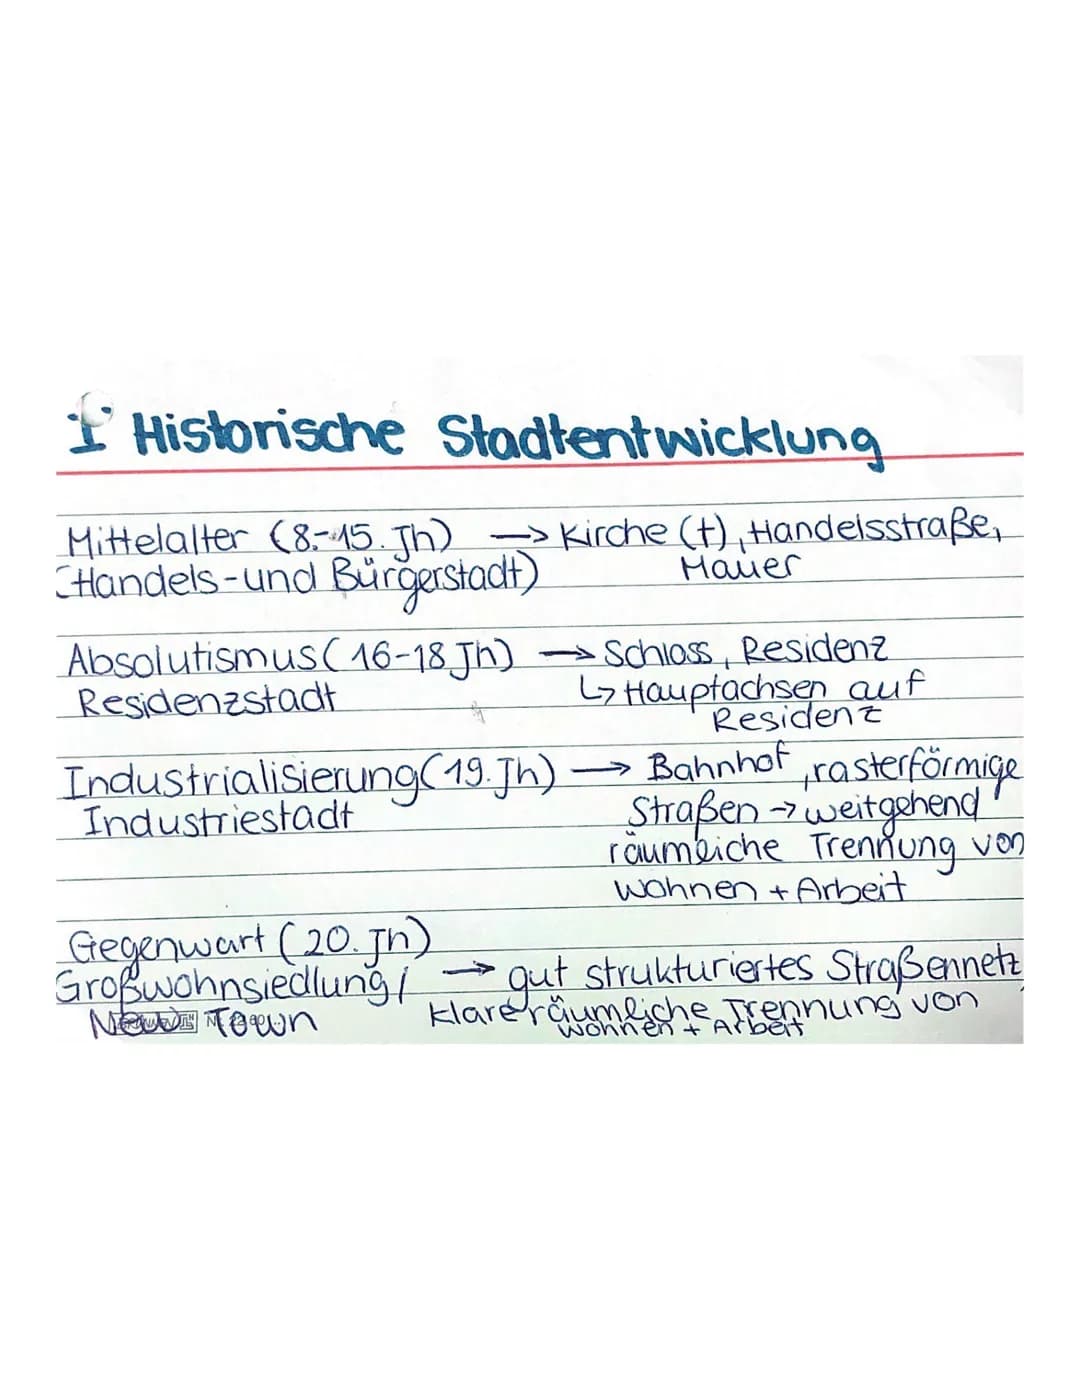 I Historische Stadtentwicklung
Mittelalter (8.-15. Jh) → Kirche (†), Handelsstraße,
(Handels- und Bürgerstadt) Mauer
Absolutismus (16-18 Jh) → Schloss, Residenz
Residenzstadt ↳ Hauptachsen auf
Residenz
Industrialisierung (19. Jh) → Bahnhof, rasterförmige
Industriestadt Straßen → weitgehend
räumliche Trennung von
Wohnen + Arbeit
Gegenwart (20. Jh)
Großwohnsiedlung / → gut strukturiertes Straßennetz,
New Town klare räumliche Trennung von
Wohnen + Arbeit